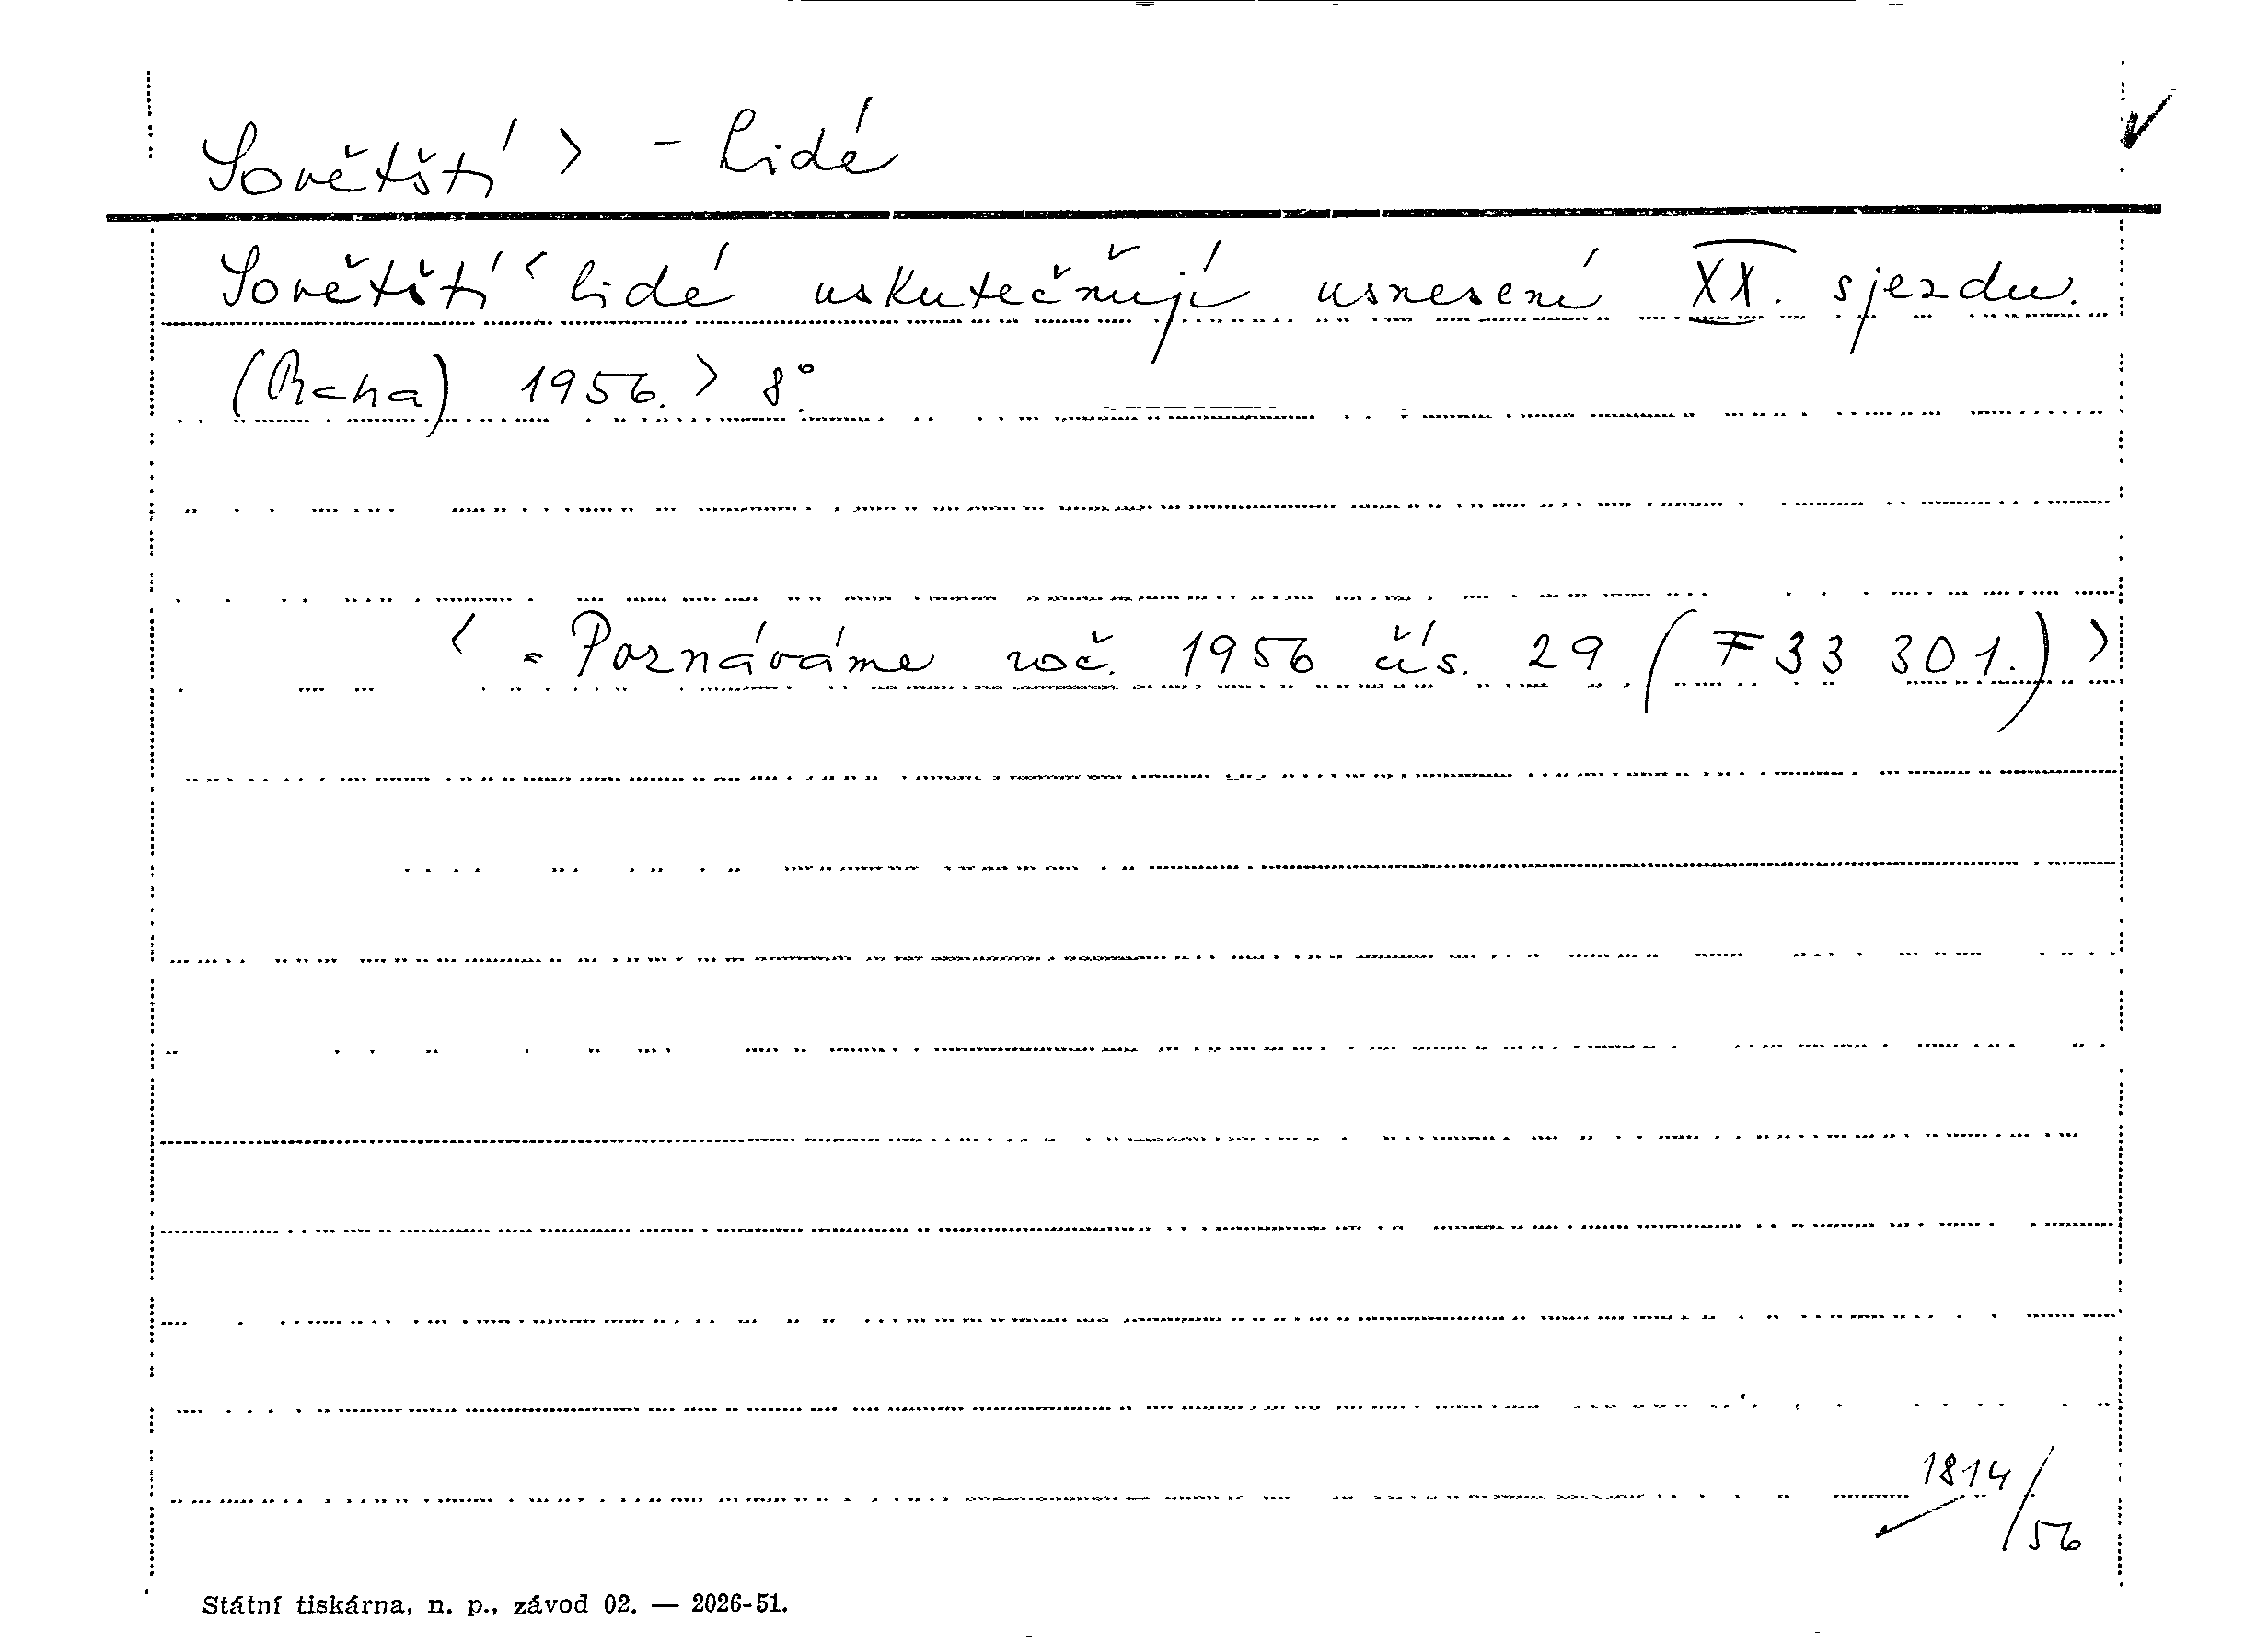 Sovětští > - Lidé
Sovětští < lidé uskutečňují usnesení XX. sjezdu.
(Praha) 1956. > 8°.
< = Poznáváme roč. 1956 čís. 29 (F 33 301.) >
1814/56
Státní tiskárna, n. p., závod 02. — 2026-51.